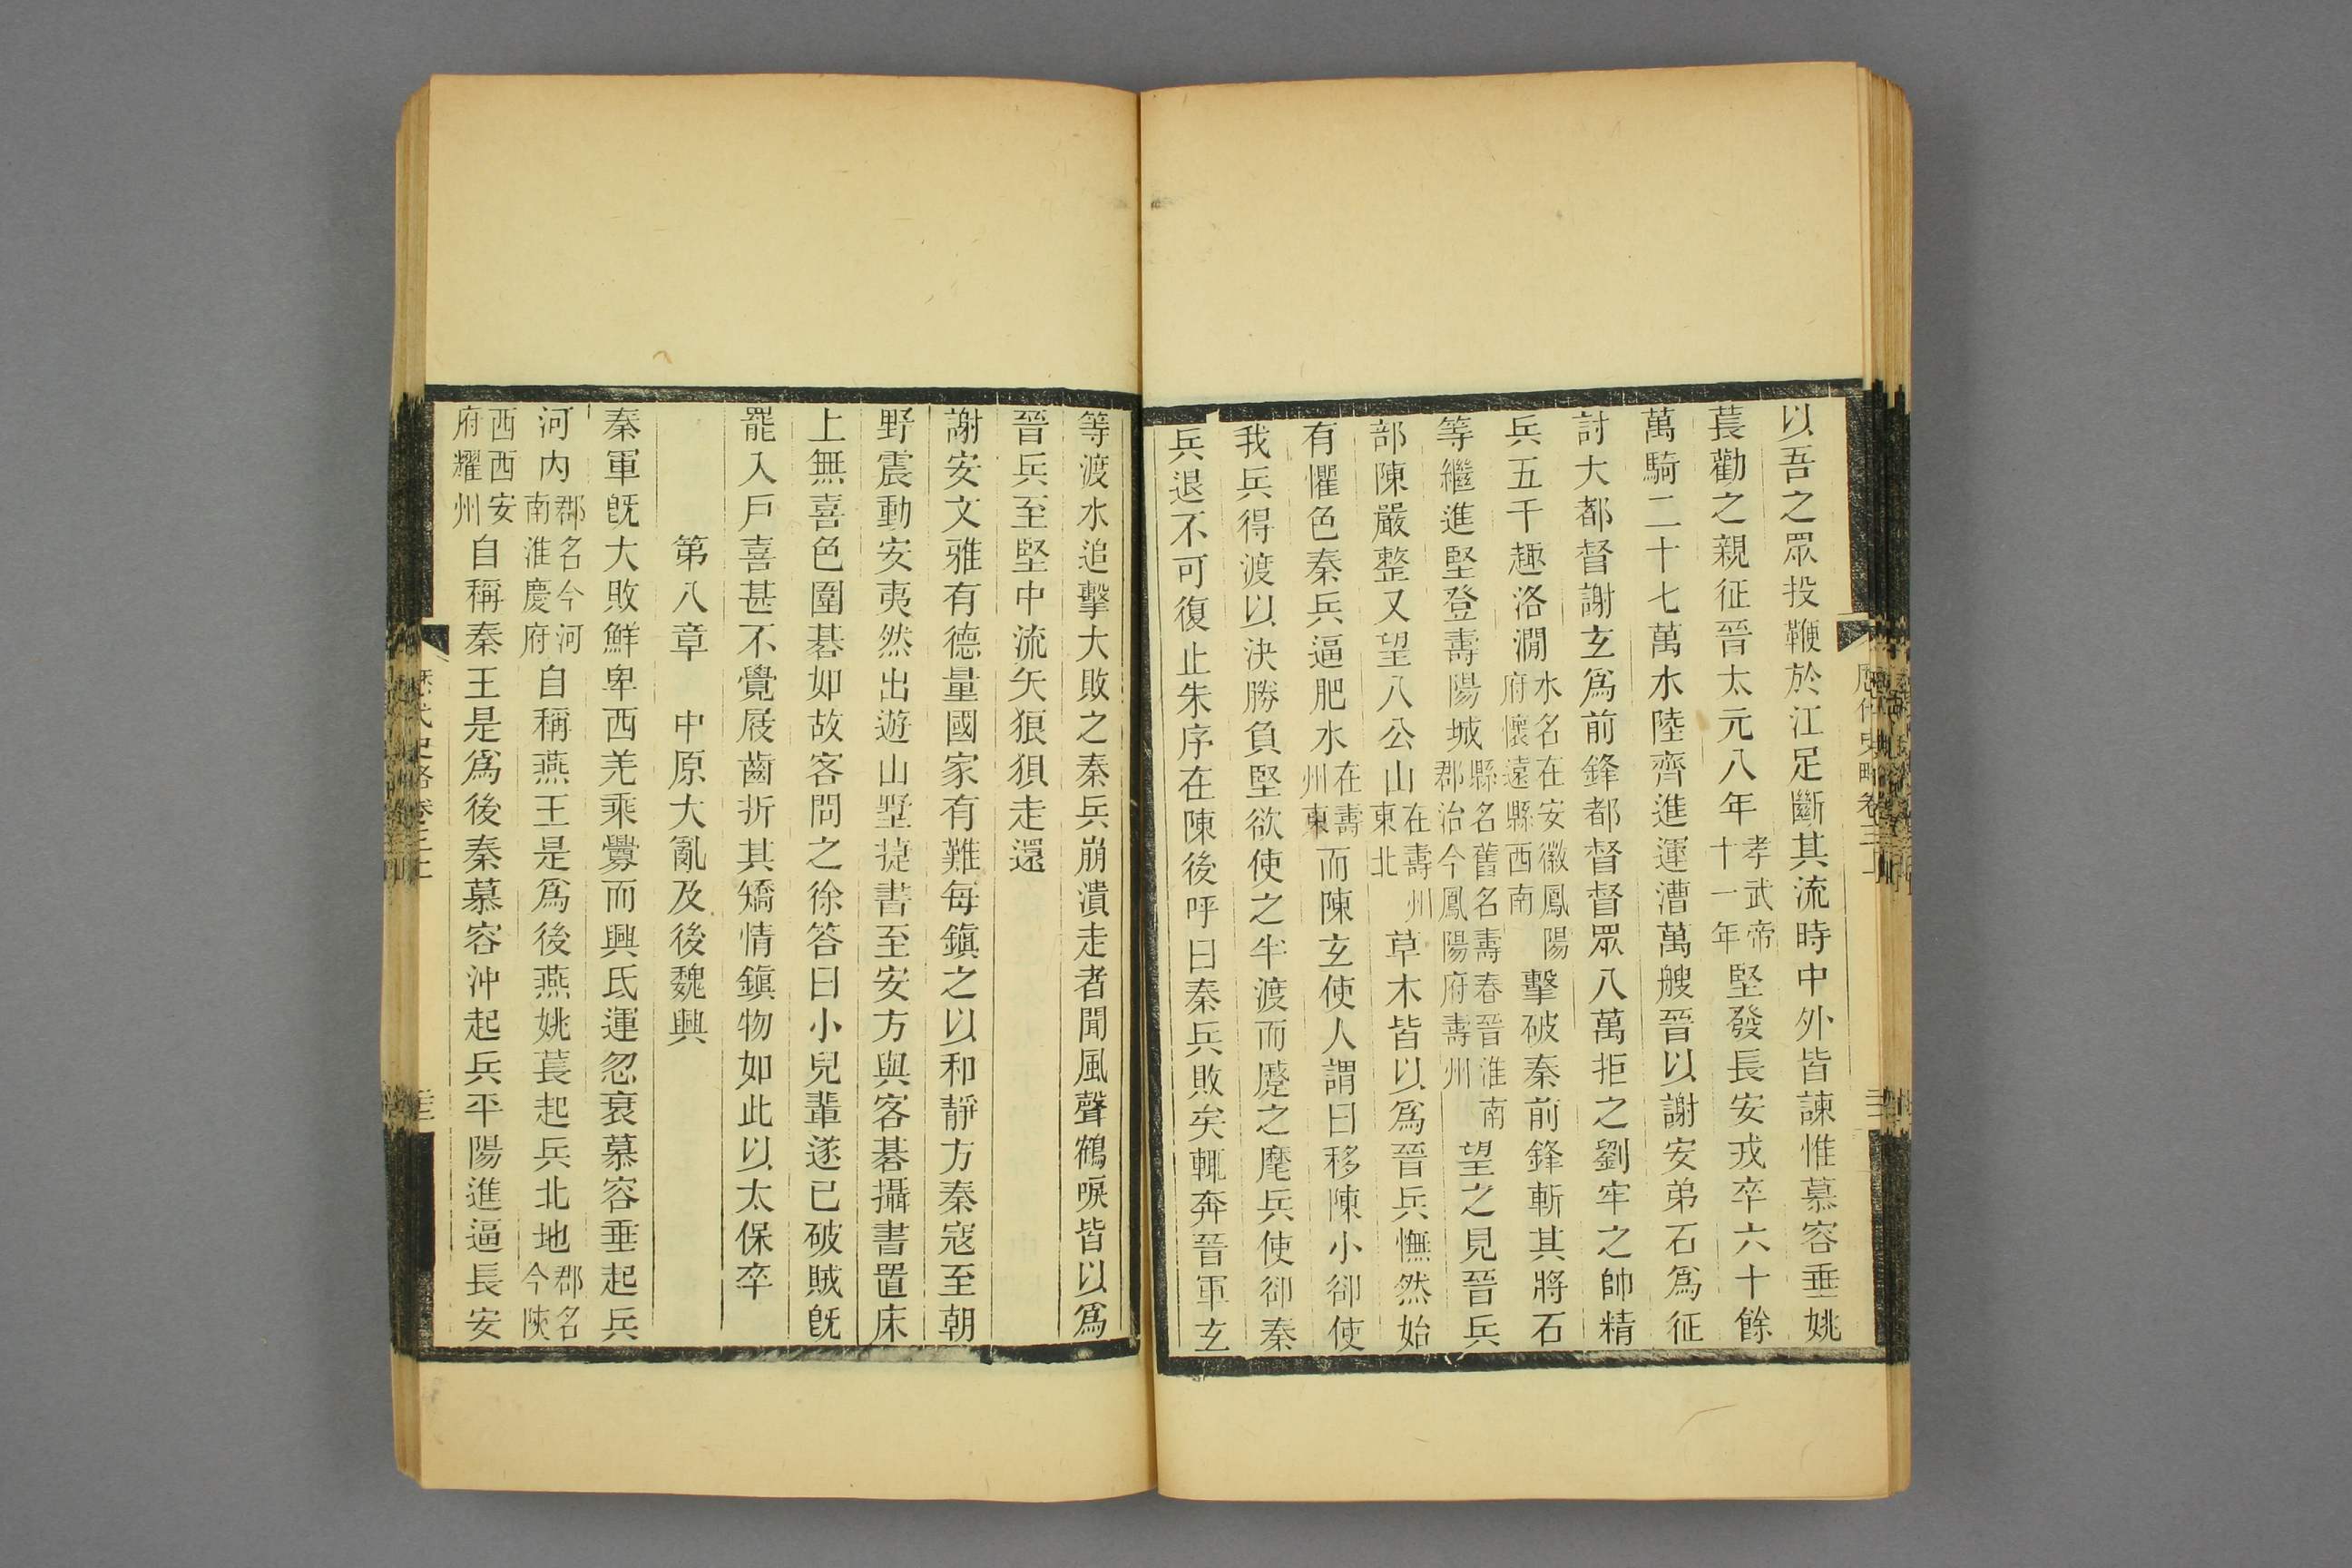 以吾之眾投鞭於江足斷其流時中外皆諫惟慕容垂姚
萇勸之親征晉太元八年孝武帝十一年堅發長安戎卒六十餘
萬騎二十七萬水陸齊進運漕萬艘晉以謝安弟石爲征
討大都督謝玄爲前鋒都督督眾八萬拒之劉牢之帥精
兵五千趣洛澗水名在安徽鳳陽府懷遠縣西南擊破秦前鋒斬其將石
等繼進堅登壽陽城縣名舊名壽春晉淮南郡治今鳳陽府壽州望之見晉兵
部陳嚴整又望八公山在壽州東北草木皆以爲晉兵憮然始
有懼色秦兵逼肥水在壽州東而陳玄使人謂曰移陳小卻使
我兵得渡以決勝負堅欲使之半渡而蹙之麾兵使卻秦
兵退不可復止朱序在陳後呼曰秦兵敗矣輒奔晉軍玄
等渡水追擊大敗之秦兵崩潰走者聞風聲鶴唳皆以爲
晉兵至堅中流矢狼狽走還
謝安文雅有德量國家有難每鎭之以和靜方秦寇至朝
野震動安夷然出遊山墅捷書至安方與客碁攝書置床
上無喜色圍碁如故客問之徐答曰小兒輩遂已破賊旣
罷入戶喜甚不覺屐齒折其矯情鎭物如此以太保卒
第八章　中原大亂及後魏興
秦軍旣大敗鮮卑西羌乘釁而興氐運忽衰慕容垂起兵
河內郡名今河南淮慶府自稱燕王是爲後燕姚萇起兵北地郡名今陝
西西安府耀州自稱秦王是爲後秦慕容沖起兵平陽進逼長安
歷代史略卷三上